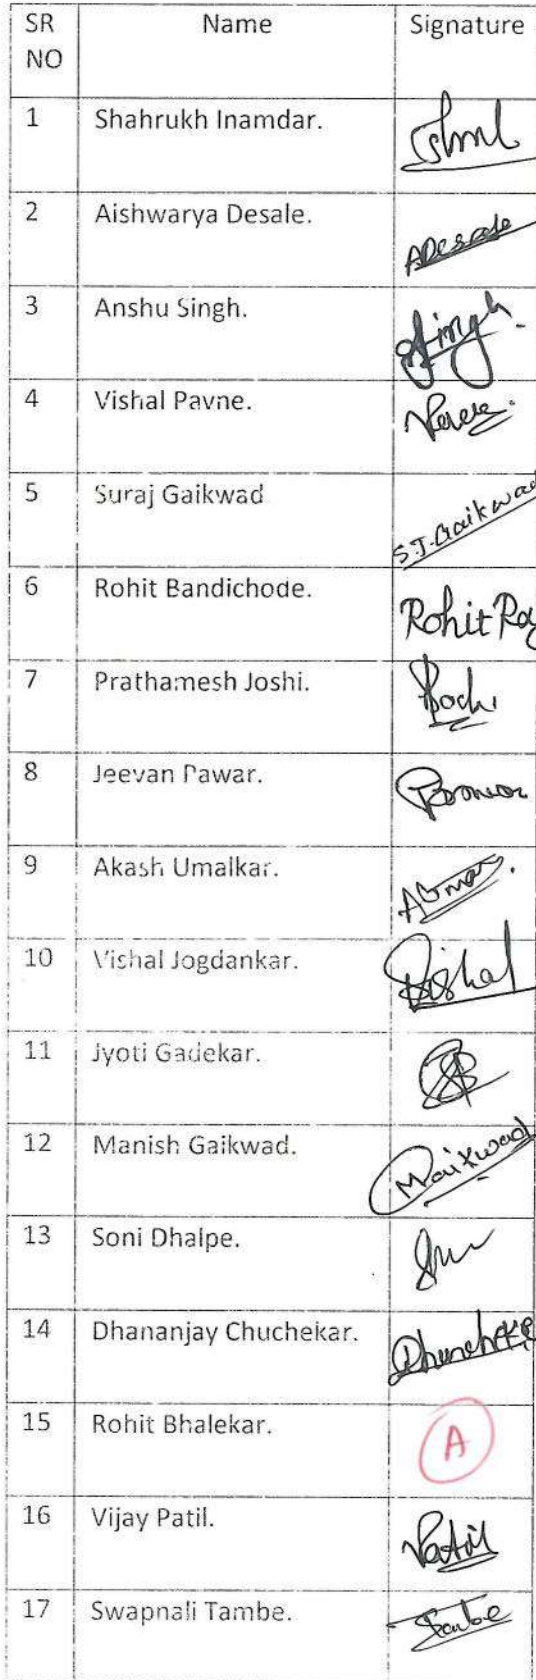 SR NO Name Signature
1 Shahrukh Inamdar.
2 Aishwarya Desale. ADesale
3 Anshu Singh. Singh.
4 Vishal Pavne.
5 Suraj Gaikwad S.J.Gaikwad
6 Rohit Bandichode. Rohit
7 Prathamesh Joshi.
8 Jeevan Pawar.
9 Akash Umalkar.
10 Vishal Jogdankar. Vishal
11 Jyoti Gadekar.
12 Manish Gaikwad. MGaikwad
13 Soni Dhalpe.
14 Dhananjay Chuchekar.
15 Rohit Bhalekar. A
16 Vijay Patil. Patil
17 Swapnali Tambe. Tambe